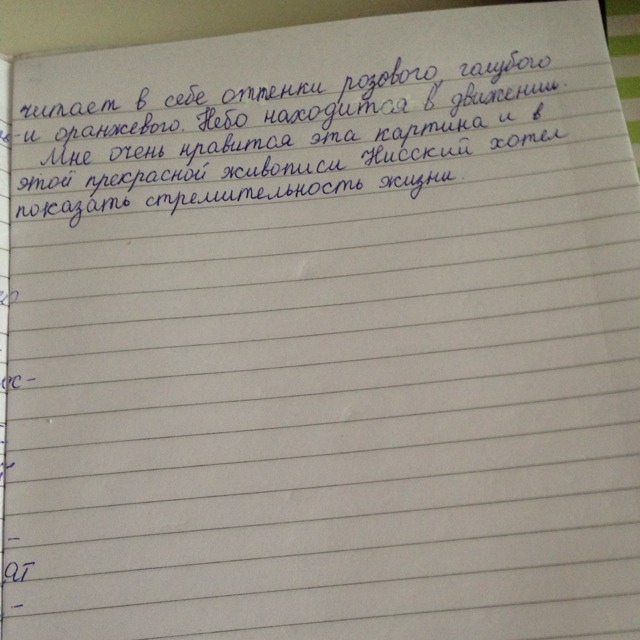 читает в себе оттенки розового, галубого
и оранжевого. Небо находится в движении.
Мне очень нравится эта картина и в
этой прекрасной живописи Нисский хотел
показать стремительность жизни.
ос-
-
ат
-